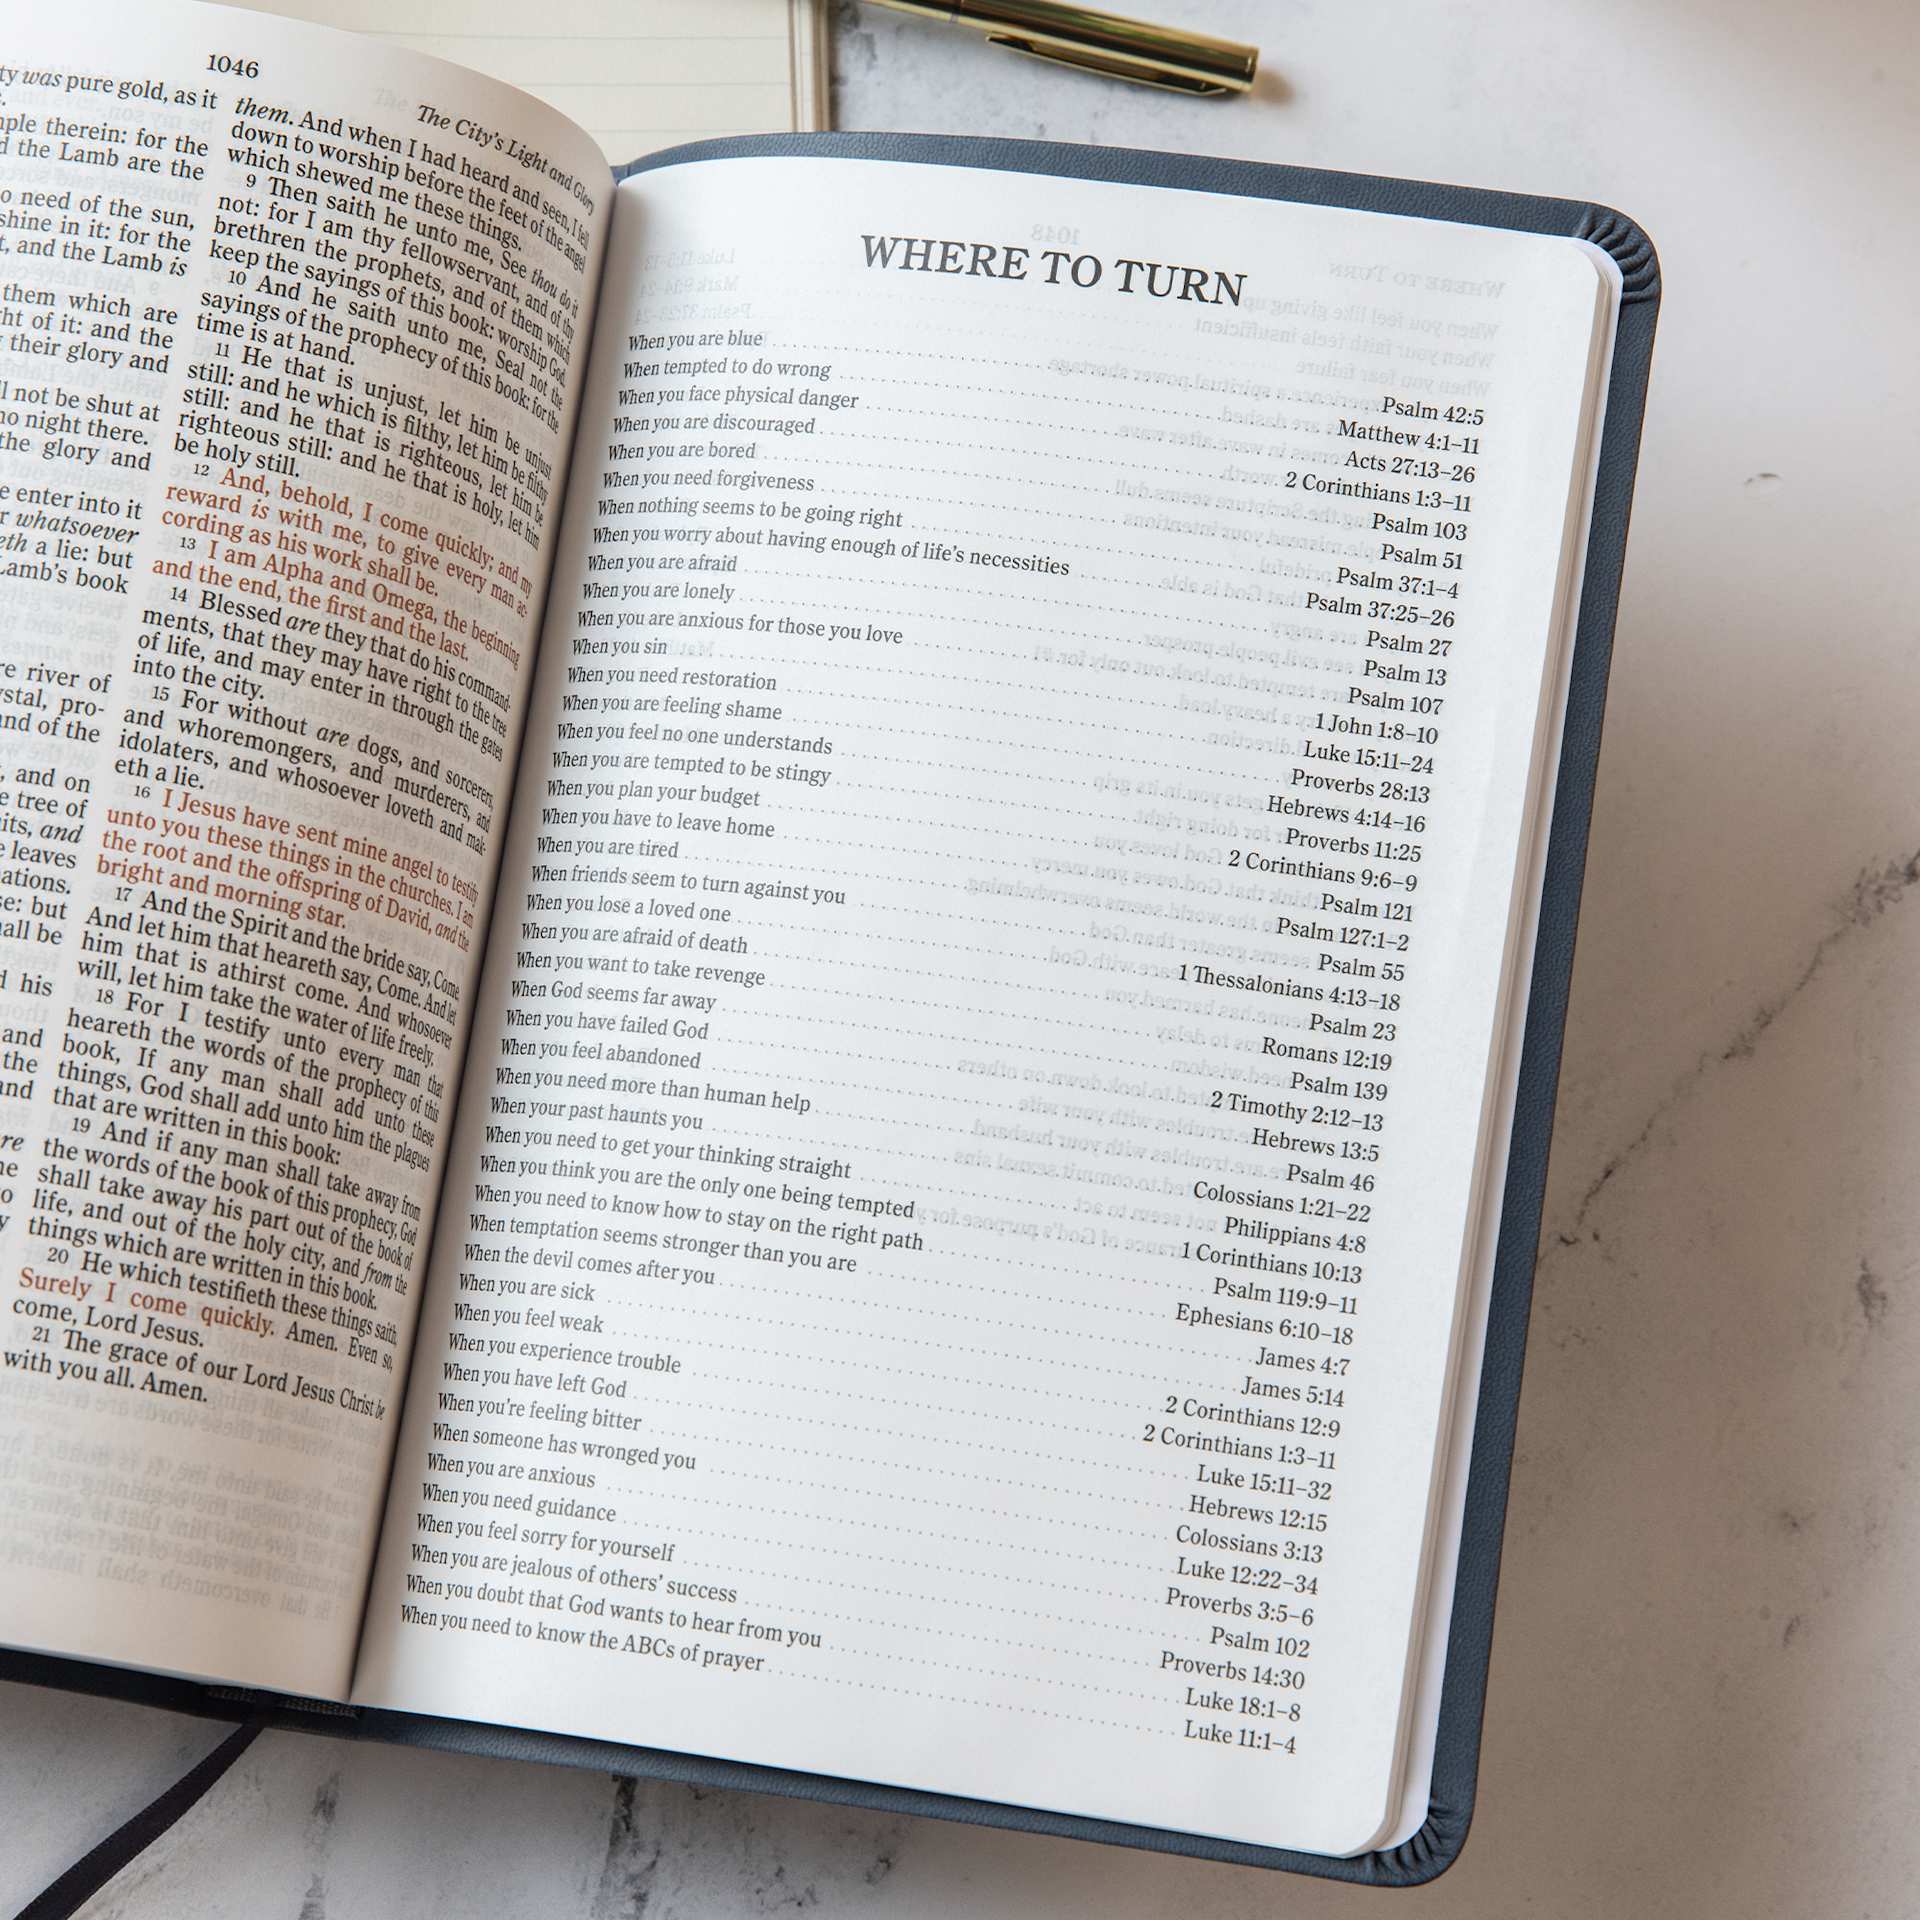 1046
The City's Light and Glory
ty was pure gold, as it
ple therein: for the
d the Lamb are the
o need of the sun,
shine in it: for the
t, and the Lamb is
them which are
ht of it: and the
their glory and
ll not be shut at
no night there.
the glory and
e enter into it
r whatsoever
eth a lie: but
Lamb's book
re river of
ystal, pro-
and of the
, and on
e tree of
its, and
e leaves
ations.
se: but
all be
d his
and
the
and
re
ne
o
y
them. And when I had heard and seen, I fell
down to worship before the feet of the angel
which shewed me these things.
9 Then saith he unto me, See thou do it
not: for I am thy fellowservant, and of thy
brethren the prophets, and of them which
keep the sayings of this book: worship God.
10 And he saith unto me, Seal not the
sayings of the prophecy of this book: for the
time is at hand.
11 He that is unjust, let him be unjust
still: and he which is filthy, let him be filthy
still: and he that is righteous, let him be
righteous still: and he that is holy, let him
be holy still.
12 And, behold, I come quickly; and my
reward is with me, to give every man ac-
cording as his work shall be.
13 I am Alpha and Omega, the beginning
and the end, the first and the last.
14 Blessed are they that do his command-
ments, that they may have right to the tree
of life, and may enter in through the gates
into the city.
15 For without are dogs, and sorcerers,
and whoremongers, and murderers, and
idolaters, and whosoever loveth and mak-
eth a lie.
16 I Jesus have sent mine angel to testify
unto you these things in the churches. I am
the root and the offspring of David, and the
bright and morning star.
17 And the Spirit and the bride say, Come.
And let him that heareth say, Come. And let
him that is athirst come. And whosoever
will, let him take the water of life freely.
18 For I testify unto every man that
heareth the words of the prophecy of this
book, If any man shall add unto these
things, God shall add unto him the plagues
that are written in this book:
19 And if any man shall take away from
the words of the book of this prophecy, God
shall take away his part out of the book of
life, and out of the holy city, and from the
things which are written in this book.
20 He which testifieth these things saith,
Surely I come quickly. Amen. Even so,
come, Lord Jesus.
21 The grace of our Lord Jesus Christ be
with you all. Amen.
WHERE TO TURN
When you are blue Psalm 42:5
When tempted to do wrong Matthew 4:1–11
When you face physical danger Acts 27:13–26
When you are discouraged 2 Corinthians 1:3–11
When you are bored Psalm 103
When you need forgiveness Psalm 51
When nothing seems to be going right Psalm 37:1–4
When you worry about having enough of life's necessities Psalm 37:25–26
When you are afraid Psalm 27
When you are lonely Psalm 13
When you are anxious for those you love Psalm 107
When you sin 1 John 1:8–10
When you need restoration Luke 15:11–24
When you are feeling shame Proverbs 28:13
When you feel no one understands Hebrews 4:14–16
When you are tempted to be stingy Proverbs 11:25
When you plan your budget 2 Corinthians 9:6–9
When you have to leave home Psalm 121
When you are tired Psalm 127:1–2
When friends seem to turn against you Psalm 55
When you lose a loved one 1 Thessalonians 4:13–18
When you are afraid of death Psalm 23
When you want to take revenge Romans 12:19
When God seems far away Psalm 139
When you have failed God 2 Timothy 2:12–13
When you feel abandoned Hebrews 13:5
When you need more than human help Psalm 46
When your past haunts you Colossians 1:21–22
When you need to get your thinking straight Philippians 4:8
When you think you are the only one being tempted 1 Corinthians 10:13
When you need to know how to stay on the right path Psalm 119:9–11
When temptation seems stronger than you are Ephesians 6:10–18
When the devil comes after you James 4:7
When you are sick James 5:14
When you feel weak 2 Corinthians 12:9
When you experience trouble 2 Corinthians 1:3–11
When you have left God Luke 15:11–32
When you're feeling bitter Hebrews 12:15
When someone has wronged you Colossians 3:13
When you are anxious Luke 12:22–34
When you need guidance Proverbs 3:5–6
When you feel sorry for yourself Psalm 102
When you are jealous of others' success Proverbs 14:30
When you doubt that God wants to hear from you Luke 18:1–8
When you need to know the ABCs of prayer Luke 11:1–4